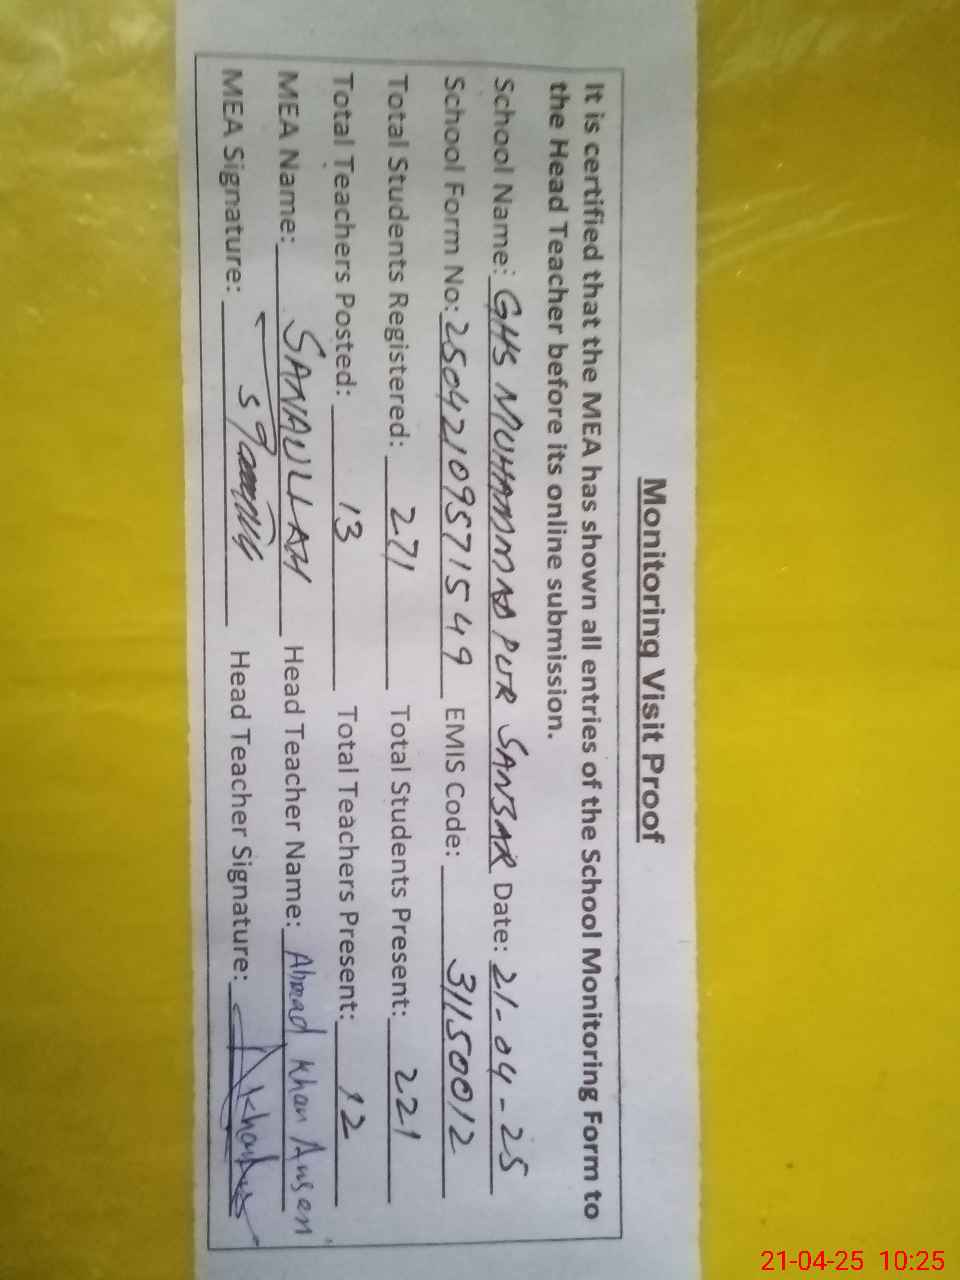 Monitoring Visit Proof
It is certified that the MEA has shown all entries of the School Monitoring Form to
the Head Teacher before its online submission.
School Name: GHS MUHAMMAD PUR SANSAR Date: 21-04-25
School Form No: 25042109571549 EMIS Code: 31150012
Total Students Registered: 271 Total Students Present: 221
Total Teachers Posted: 13 Total Teachers Present: 12
MEA Name: SANAULLAH Head Teacher Name: Ahmad Khan Ansari
MEA Signature: Head Teacher Signature:
21-04-25 10:25